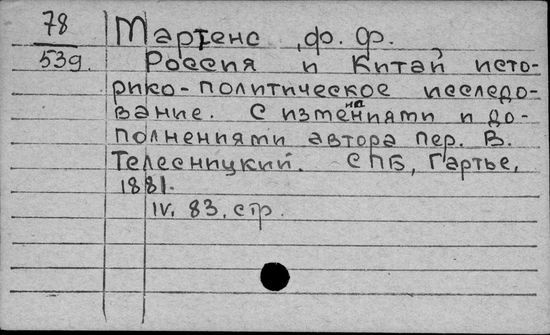 78
539.
Мартенс ,ф. ф.
Россия и Китай исто-
рико-политическое исследо-
вание. С изменниями и до-
полнениями автора пер. В.
Телесницкий. СПБ, Гартье,
1881.
IV. 83. стр.